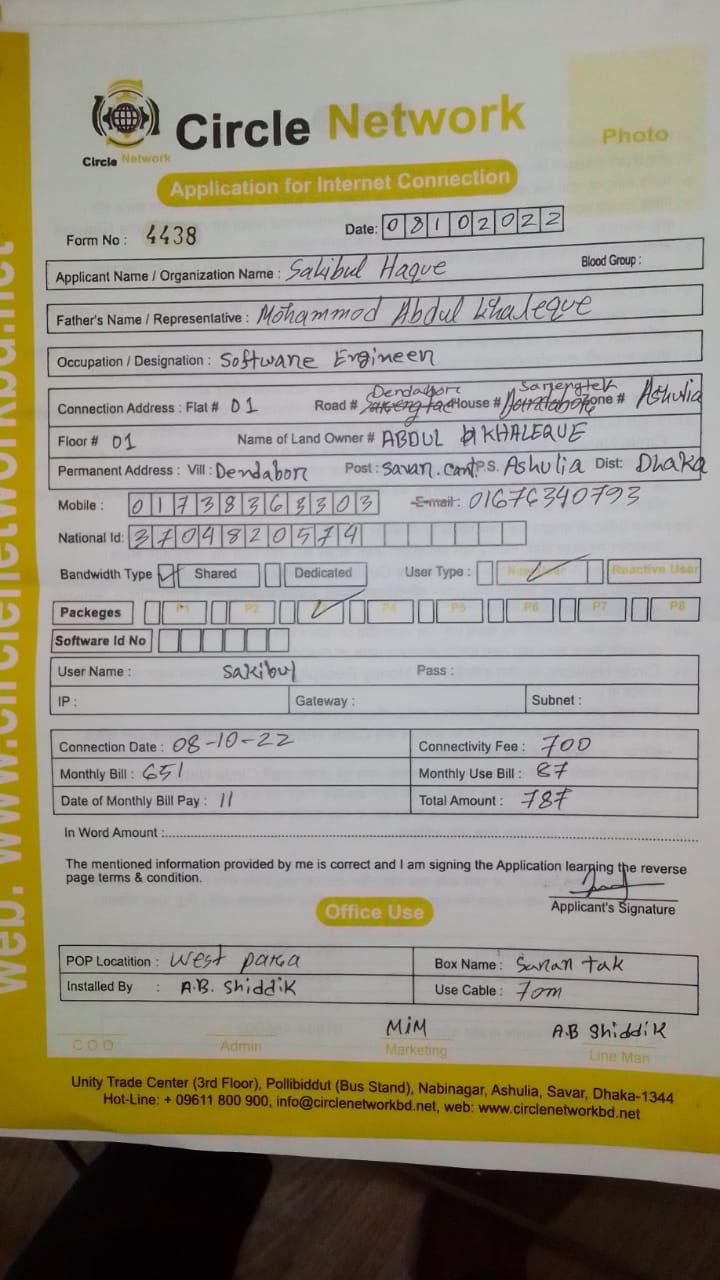 Circle Network
Circle Network
Photo
Application for Internet Connection
Form No : 4438
Date: 08102022
Applicant Name / Organization Name : Sakibul Haque
Blood Group :
Father's Name / Representative : Mohammod Abdul Khaleque
Occupation / Designation : Software Engineer
Connection Address : Flat # 01 Road # Dendabor House # Zone # Ashulia
Floor # 01 Name of Land Owner # ABDUL KHALEQUE
Permanent Address : Vill : Dendabor Post : Savar. Cant P.S. Ashulia Dist: Dhaka
Mobile : 01738363303 E-mail : 01676340793
National Id: 3704820574
Bandwidth Type Shared Dedicated User Type : New User Reactive User
Packeges P1 P2 P4 P5 P6 P7 P8
Software Id No
User Name : Sakibul Pass :
IP : Gateway : Subnet :
Connection Date : 08-10-22 Connectivity Fee : 700
Monthly Bill : 651 Monthly Use Bill : 87
Date of Monthly Bill Pay : 11 Total Amount : 787
In Word Amount :
The mentioned information provided by me is correct and I am signing the Application learning the reverse
page terms & condition.
Applicant's Signature
Office Use
POP Locatition : West para Box Name : Saran tak
Installed By : A.B. Shiddik Use Cable : 70m
MiM A.B Shiddik
C O O Admin Marketing Line Man
Unity Trade Center (3rd Floor), Pollibiddut (Bus Stand), Nabinagar, Ashulia, Savar, Dhaka-1344
Hot-Line: + 09611 800 900, info@circlenetworkbd.net, web: www.circlenetworkbd.net
web: www.circlenetworkbd.net